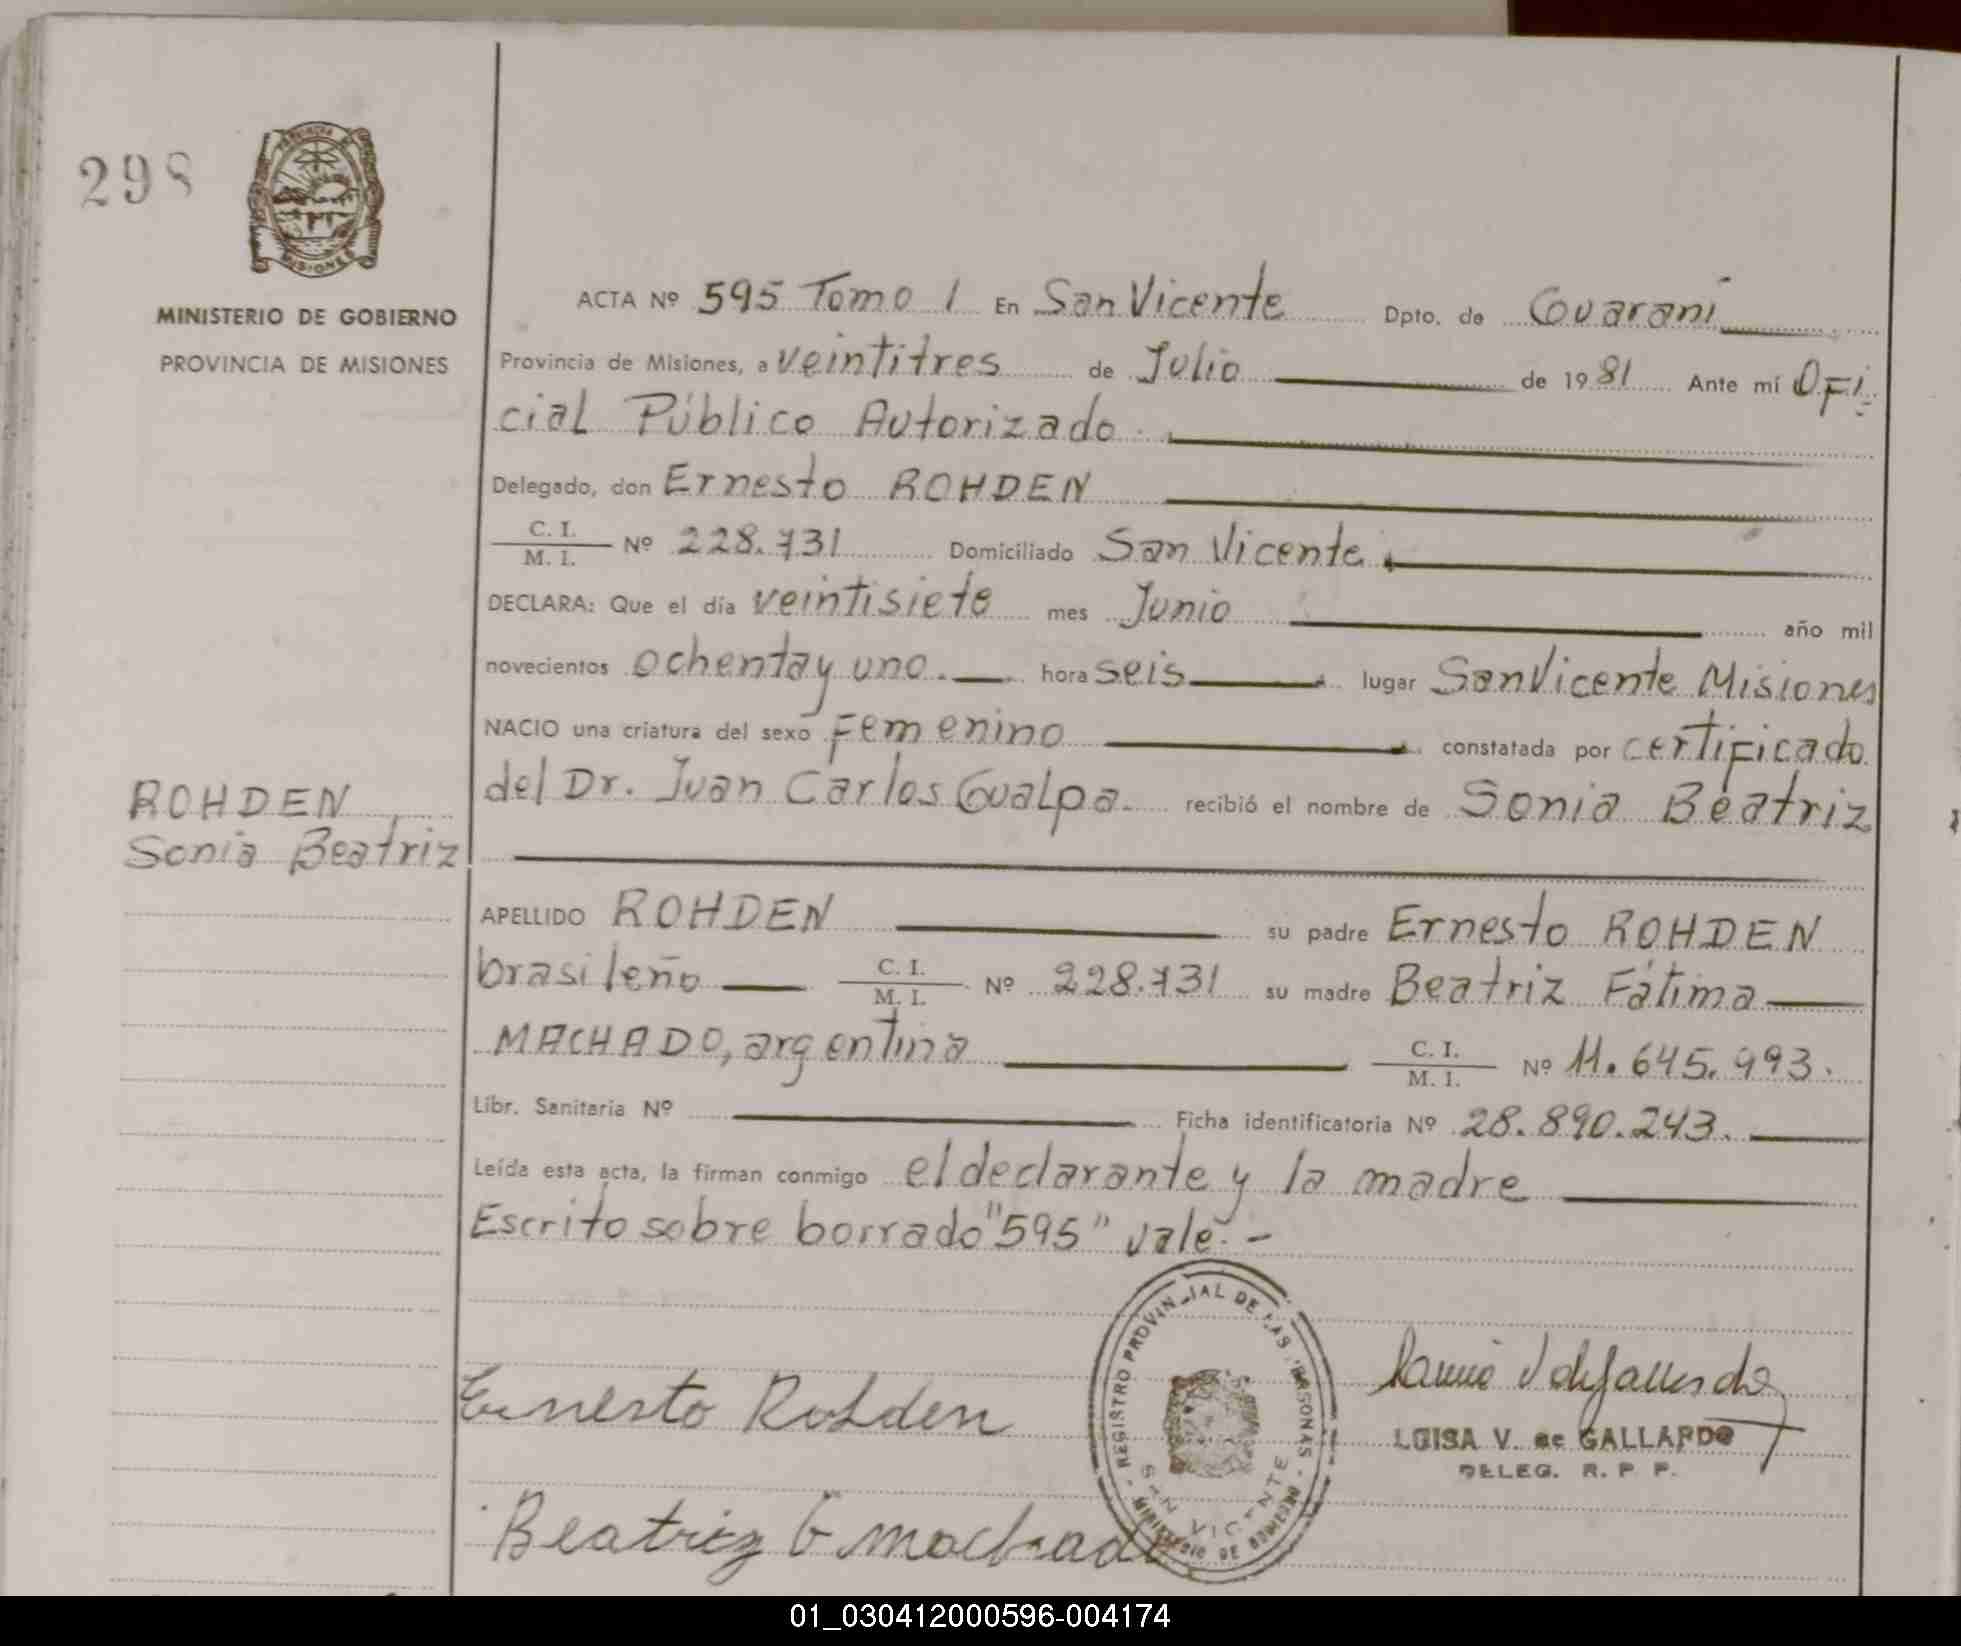 298
PROVINCIA DE
MISIONES
MINISTERIO DE GOBIERNO
PROVINCIA DE MISIONES
ACTA Nº 595 Tomo 1 En San Vicente Dpto. de Guaraní
Provincia de Misiones, a veintitres de Julio de 1981 Ante mí Ofi
cial Público Autorizado
Delegado, don Ernesto ROHDEN
C. I.
M. I. Nº 228.731 Domiciliado San Vicente
DECLARA: Que el día veintisiete mes Junio año mil
novecientos ochenta y uno. hora seis lugar San Vicente Misiones
NACIO una criatura del sexo Femenino constatada por certificado
del Dr. Juan Carlos Gualpa. recibió el nombre de Sonia Beatriz
ROHDEN
Sonia Beatriz
APELLIDO ROHDEN su padre Ernesto ROHDEN
brasileño C. I.
M. I. Nº 228.731 su madre Beatriz Fátima
MACHADO, argentina C. I.
M. I. Nº 11.645.993.
Libr. Sanitaria Nº Ficha identificatoria Nº 28.890.243.
Leída esta acta, la firman conmigo el declarante y la madre
Escrito sobre borrado "595" vale. -
Ernesto Rohden
REGISTRO PROVINCIAL DE LAS PERSONAS
SAN VICENTE
MINISTERIO DE GOBIERNO
LUISA V. de GALLARDO
DELEG. R. P. P.
Beatriz F machado
01_030412000596-004174